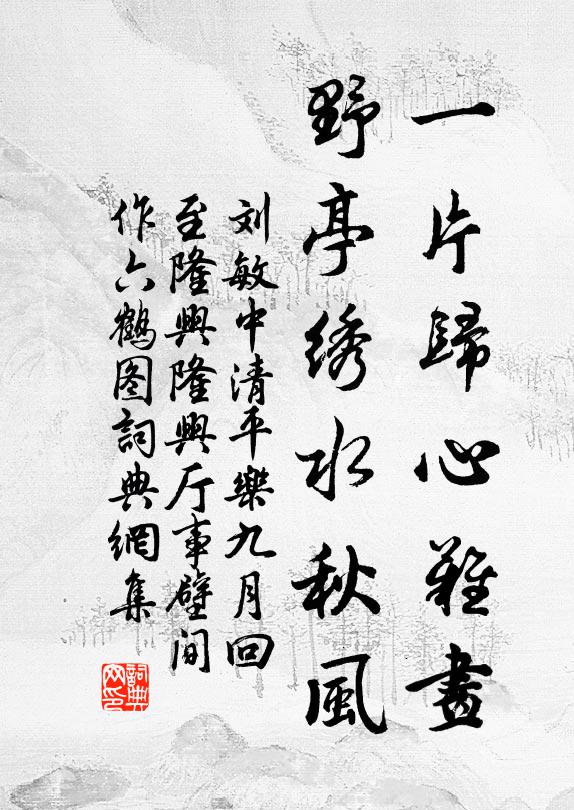 一片歸心難畫
野亭绣水秋風
刘敏中清平樂九月回
至隆興隆興厅事壁间
作六鶴图詞典網集
詞典
网印